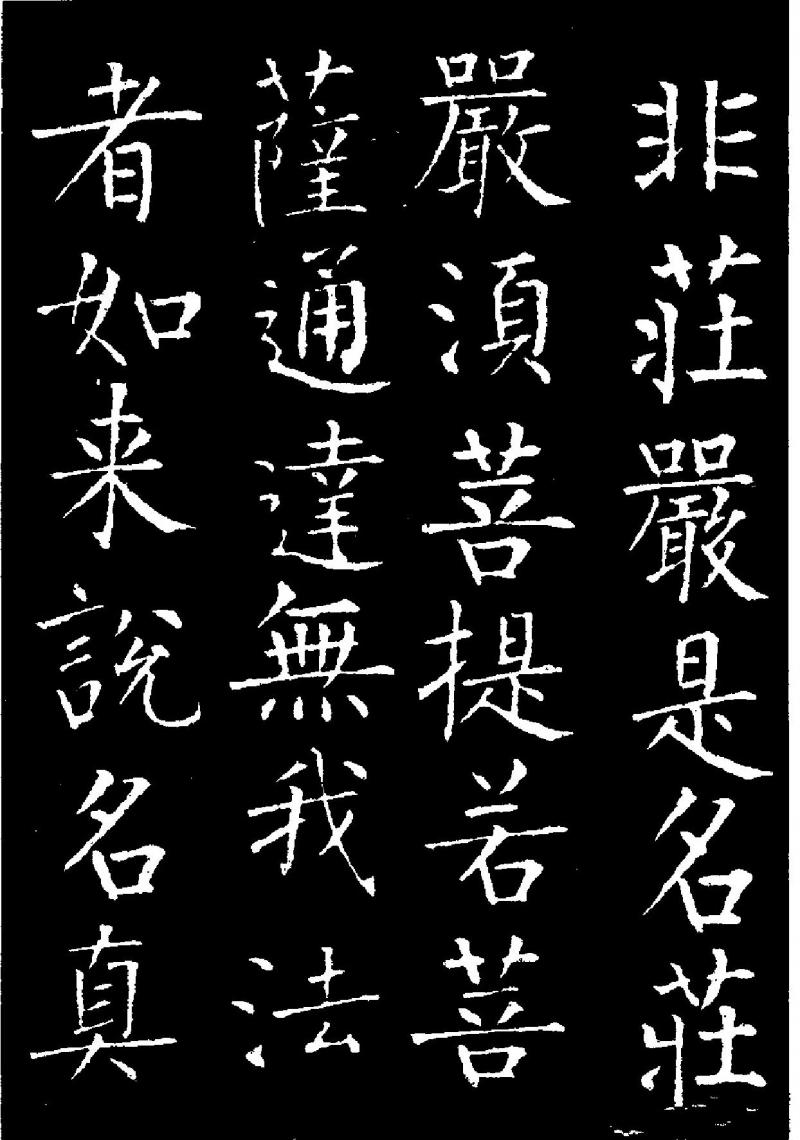 非莊嚴是名莊
嚴湏菩提若菩
薩通達無我法
者如来說名真